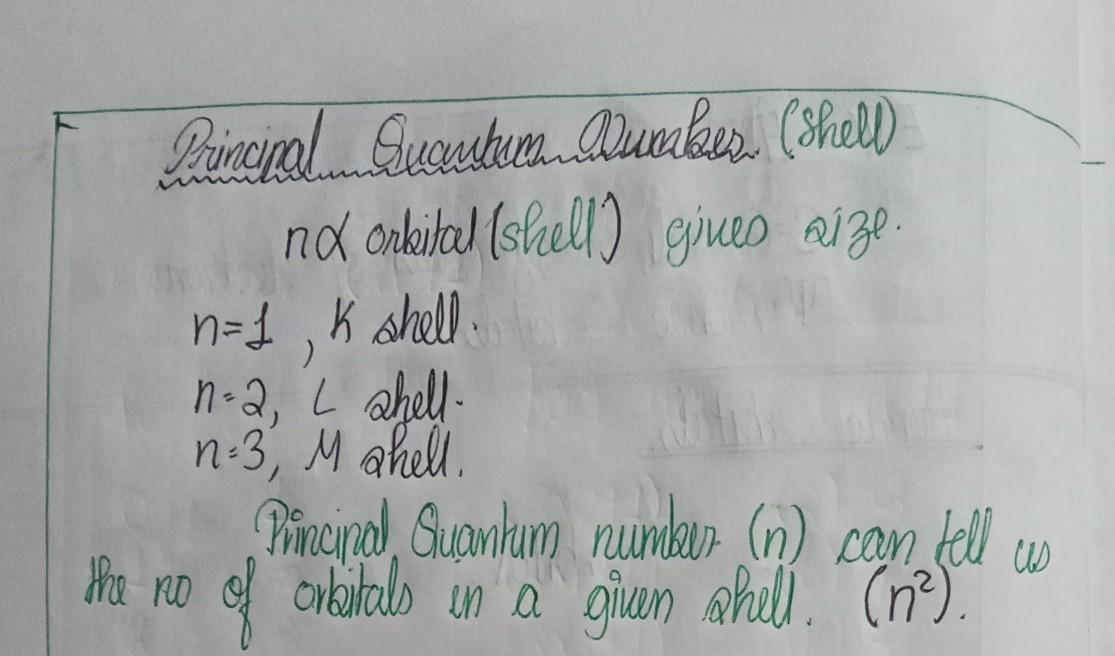 Principal Quantum Number (shell)
n α orbital (shell) gives size.
n=1 , K shell.
n=2, L shell.
n=3, M shell.
Principal Quantum number (n) can tell us
the no of orbitals in a given shell. (n²).